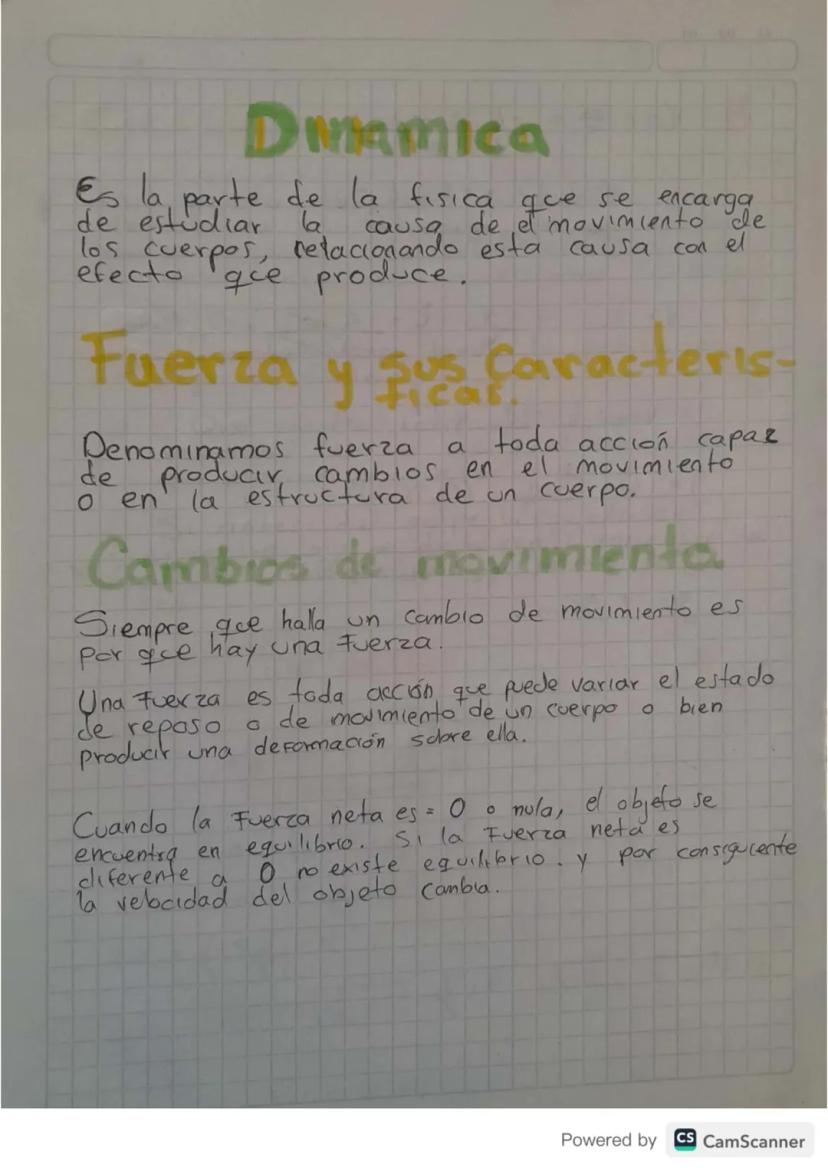 Dinamica
Es la parte de la fisica que se encarga
de estudiar la causa de el movimiento de
los cuerpos, relacionando esta causa con el
efecto que produce.
Fuerza y sus Caracteris-
ticas.
Denominamos fuerza a toda acción capaz
de producir cambios en el movimiento
o en la estructura de un cuerpo.
Cambios de movimiento
Siempre que halla un cambio de movimiento es
por que hay una fuerza.
Una fuerza es toda acción que puede variar el estado
de reposo o de movimiento de un cuerpo o bien
producir una deformación sobre ella.
Cuando la Fuerza neta es = 0 o nula, el objeto se
encuentra en equilibrio. Si la Fuerza neta es
diferente a 0 no existe equilibrio. y por consiguiente
la velocidad del objeto cambia.
Powered by CS CamScanner